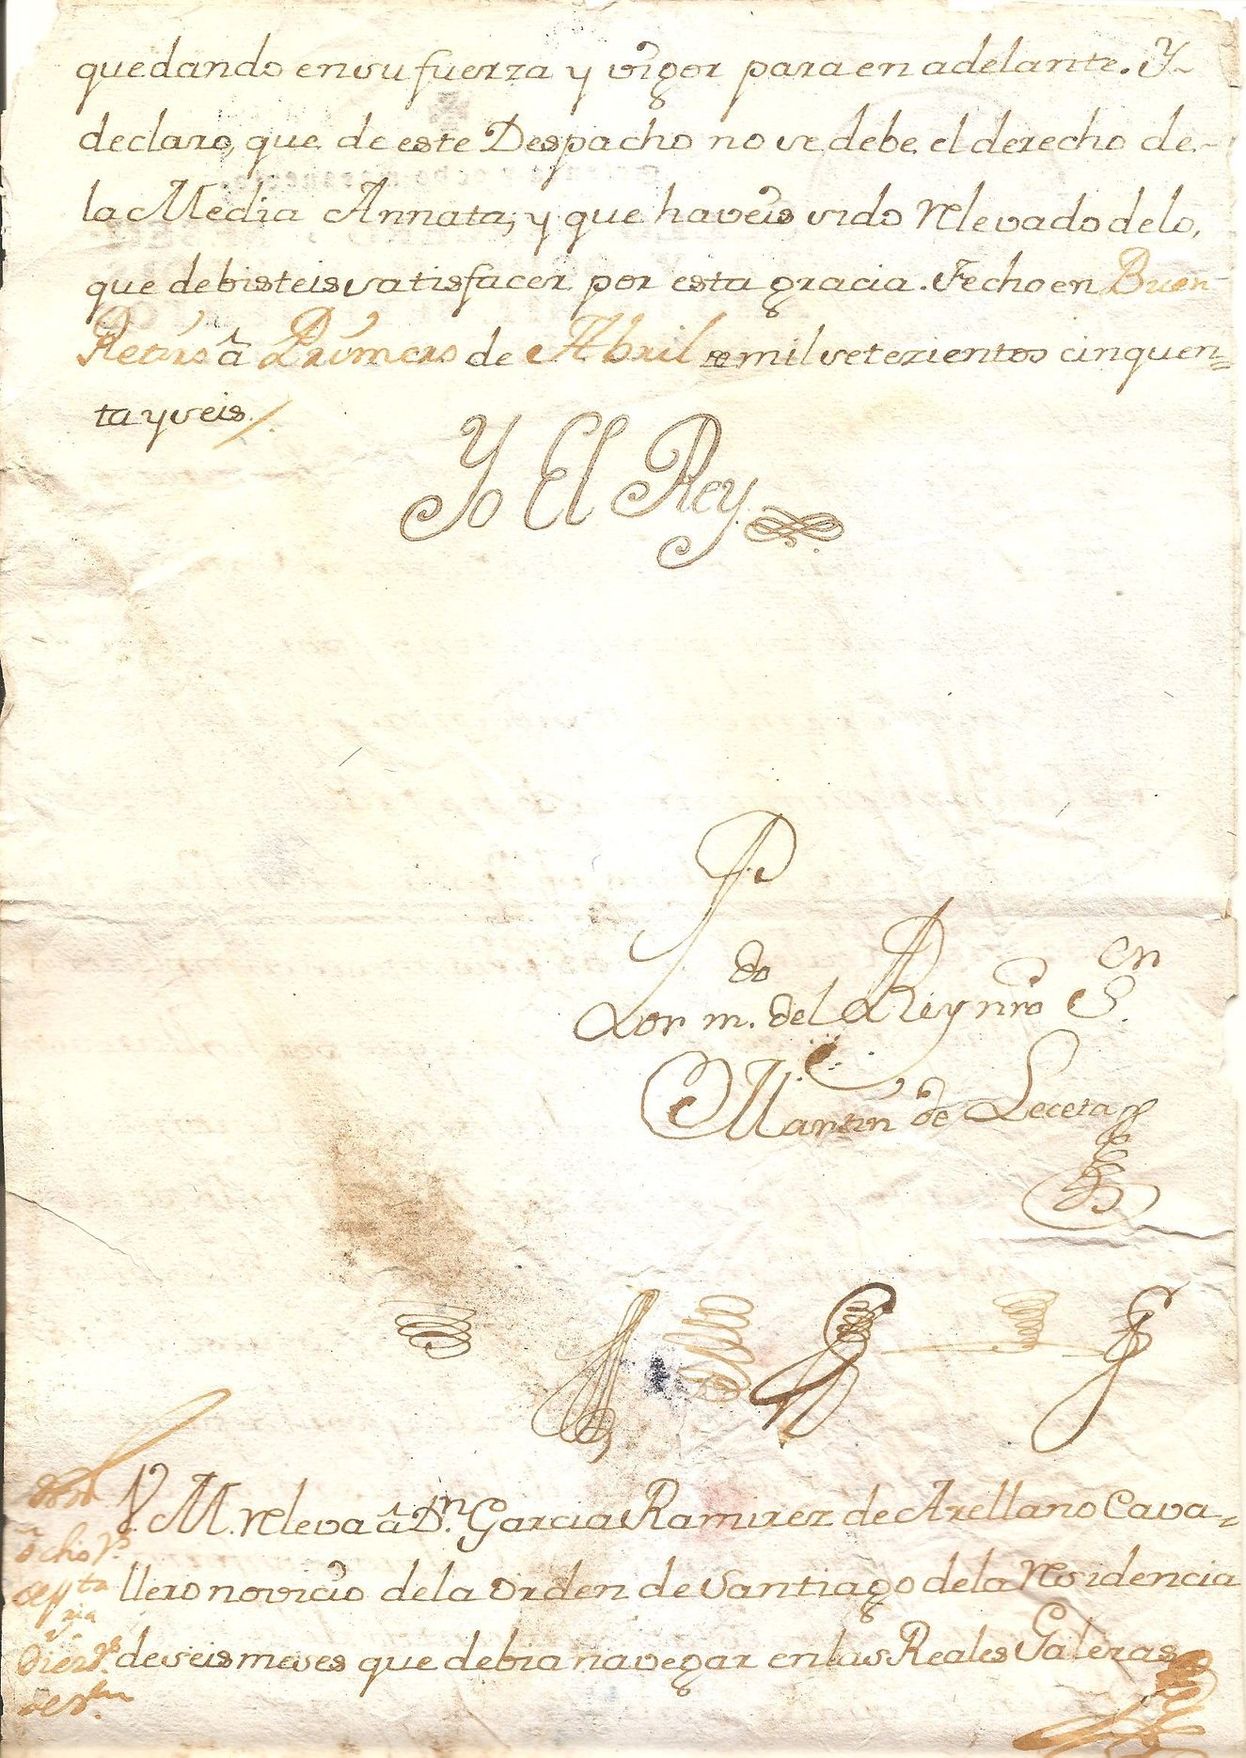 quedando en su fuerza y vigor para en adelante. Y
declaro, que de este Despacho no se debe el derecho de-
la Media Annata; y que haveis sido relevado de lo,
que debisteis satisfacer por esta gracia. Fecho en Buen
Retiro à Primero de Abril de mil setezientos cinquen=
ta y seis.
Yo El Rey
Por m.do del Rey nro S.or
Martin de Leceta
V. M. releva à D.n Garcia Ramirez de Arellano Cava=
llero novicio de la Orden de Santiago de la residencia
de seis meses que debia navegar en las Reales Galeras